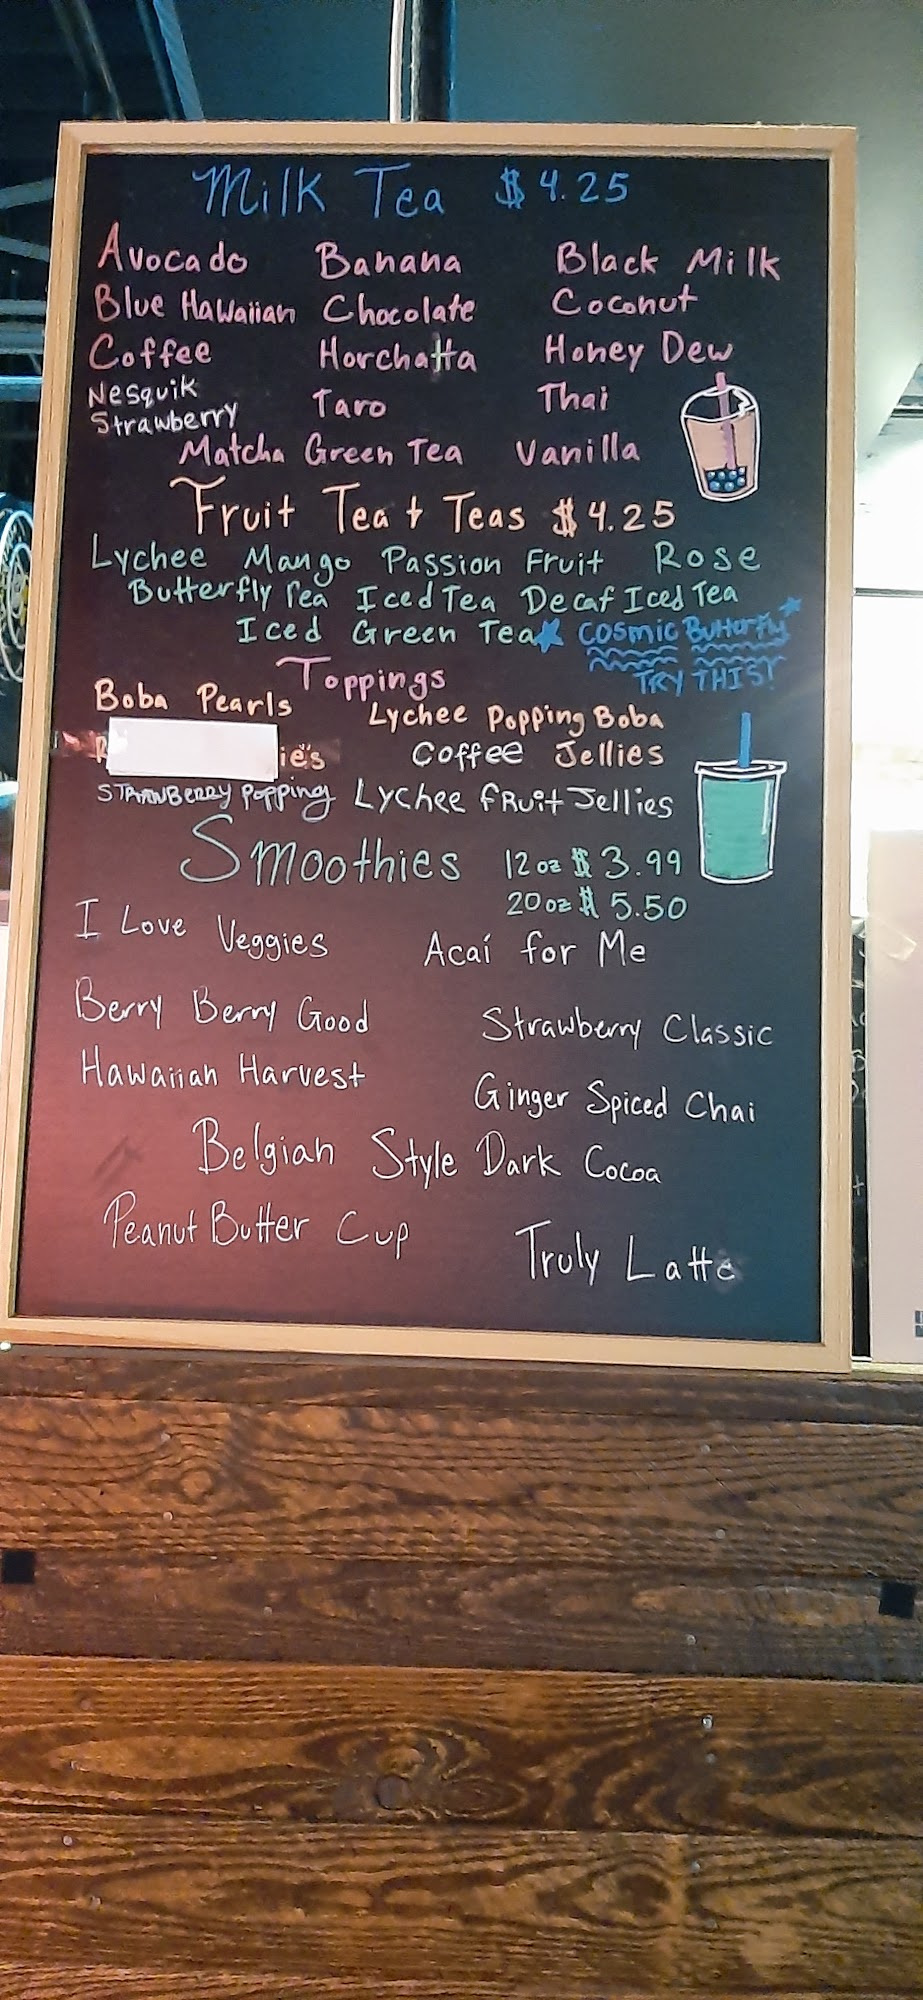 Milk Tea $4.25
Avocado Banana Black Milk
Blue Hawaiian Chocolate Coconut
Coffee Horchatta Honey Dew
Nesquik
Strawberry Taro Thai
Matcha Green Tea Vanilla
Fruit Tea + Teas $4.25
Lychee Mango Passion Fruit Rose
Butterfly Tea Iced Tea Decaf Iced Tea
Iced Green Tea Cosmic Butterfly
TRY THIS!
Toppings
Boba Pearls Lychee Popping Boba
Coffee Jellies
STRAWBERRY Popping Lychee fRuit Jellies
Smoothies 12 oz $3.99
20 oz $5.50
I Love Veggies Acaí for Me
Berry Berry Good Strawberry Classic
Hawaiian Harvest Ginger Spiced Chai
Belgian Style Dark Cocoa
Peanut Butter Cup Truly Latte